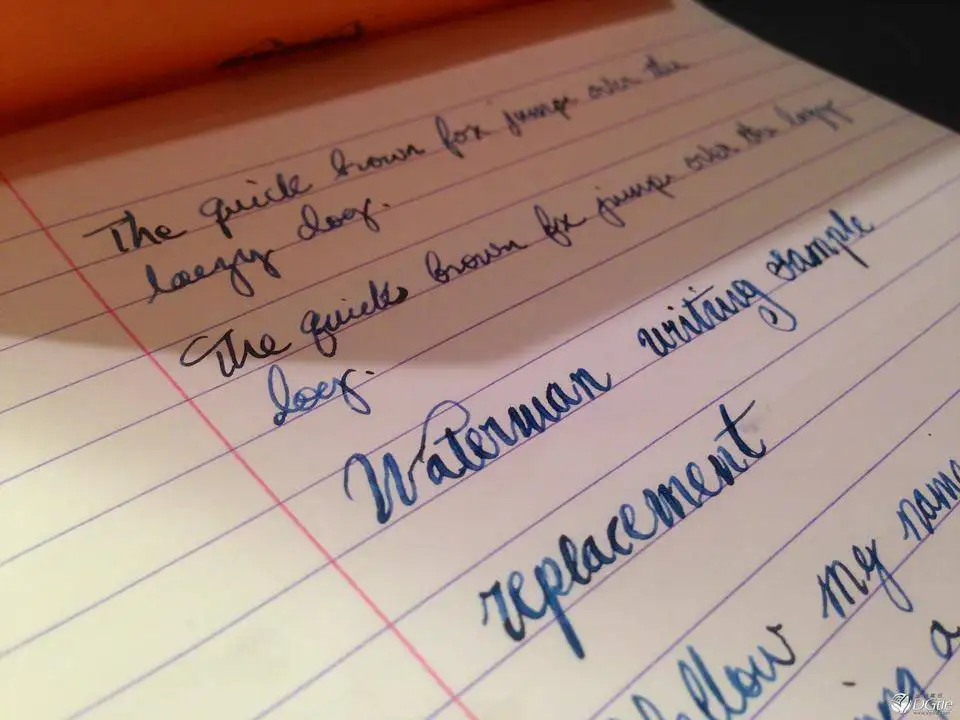 The quick brown fox jumps over the
laezy dog.
The quick brown fox jumps over the lazy
dog.
Waterman writing sample
replacement
my name
a
DGtle